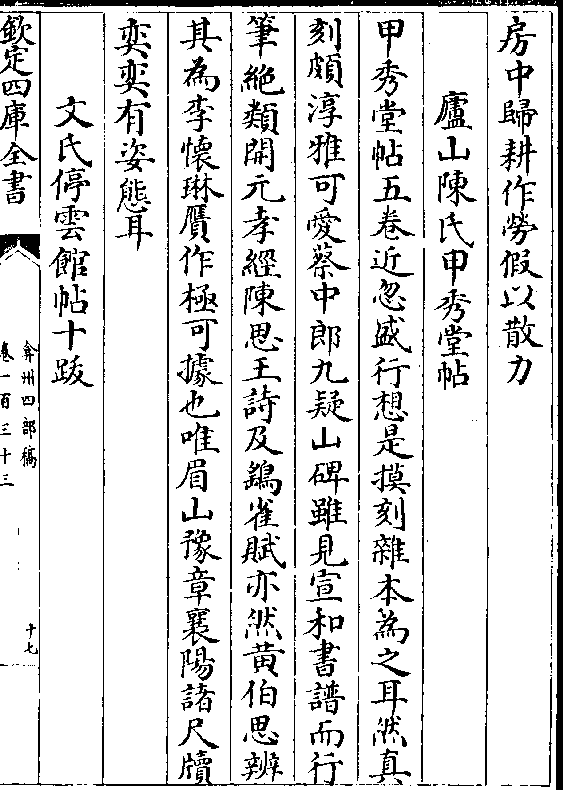 房中歸耕作勞假以散力
廬山陳氏甲秀堂帖
甲秀堂帖五卷近忽盛行想是摸刻雜本為之耳然真
刻頗淳雅可愛蔡中郎九疑山碑雖見宣和書譜而行
筆絶類開元孝經陳思王詩及鷂雀賦亦然黄伯思辨
其為李懷琳贋作極可據也唯眉山豫章襄陽諸尺牘
奕奕有姿態耳
文氏停雲館帖十跋
欽定四庫全書
弇州四部稿
卷一百三十三
十七